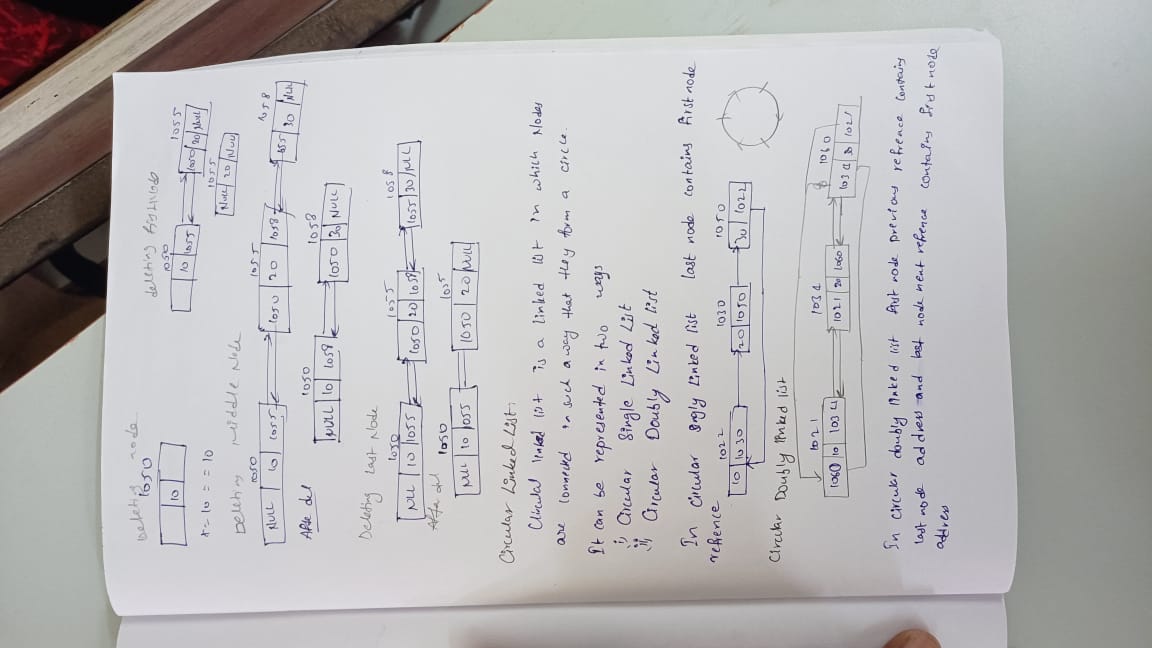 Deleting node
1050
10
x = 10 = = 10
deleting first node
1050
10 1055
1055
1050 20 NULL
1055
NULL 20 NULL
Deleting Middle Node
1050
NULL 10 1055
1055
1050 20 1058
1058
1055 30 NULL
Afte del
1050
NULL 10 1058
1058
1050 30 NULL
Deleting Last Node
1050
NLL 10 1055
1055
1050 20 1058
1058
1055 30 NLL
Afte del
1050
NULL 10 1055
1055
1050 20 NULL
Circular Linked List:
Circulal linked list is a linked list in which Nodes
are connected in such a way that they form a circle.
It can be represented in two ways
i) Circular Single Linked List
ii) Circular Doubly Linked list
In circular singly linked list last node contains first node
refrence
1022
10 1030
1030
20 1050
1050
30 1022
Circular Doubly linked list
1021
1060 10 1034
1034
1021 20 1060
1060
1034 1021
In circular doubly linked list first node previous refrence contains
last node address and last node next refrence contains first node
address